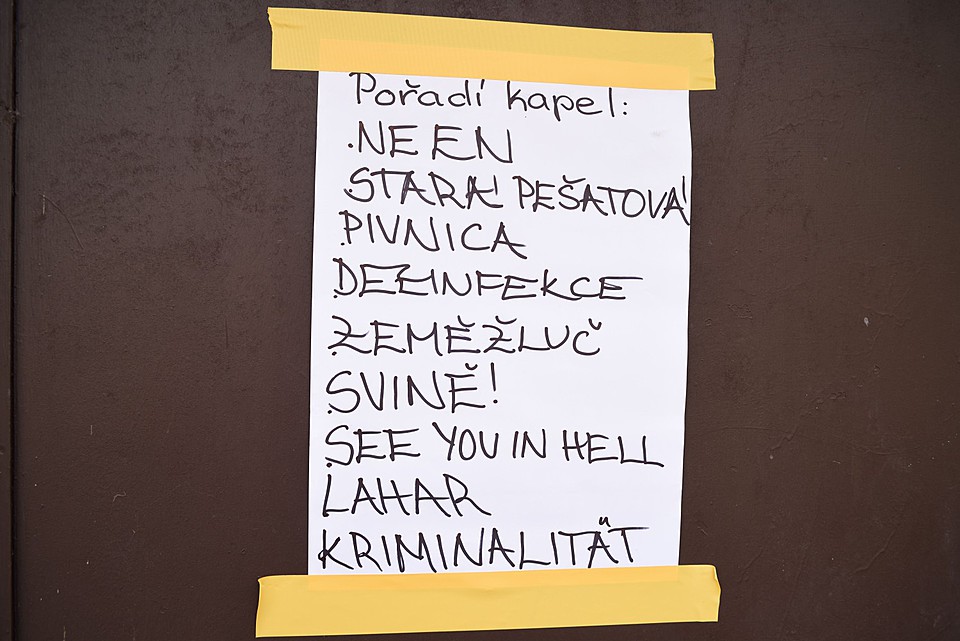 Pořadí kapel:
.NE EN
.STARÁ PEŠATOVÁ
PIVNICA
DEZINFEKCE
ZEMĚŽLUČ
SVINĚ!
SEE YOU IN HELL
LAHAR
KRIMINALITÄT